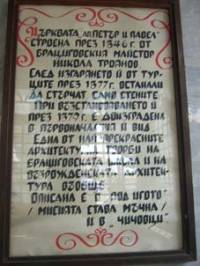 Църквата „Св. Петър и Павел"
строена през 1846 г. от
брациговския майстор
Никола Троянов
След изгарянето ѝ от тур-
ците през 1877г. останали
да стърчат само стените
При възстановяването ѝ
през 1879 г. е доизградена
в първоначалния ѝ вид.
Една от най-прекрасните
архитектурни творби на
брациговската школа и на
възрожденската архитек-
тура въобще
Описана е в „Под игото"
/Мисията става мъчна/
и в „Чичовци"